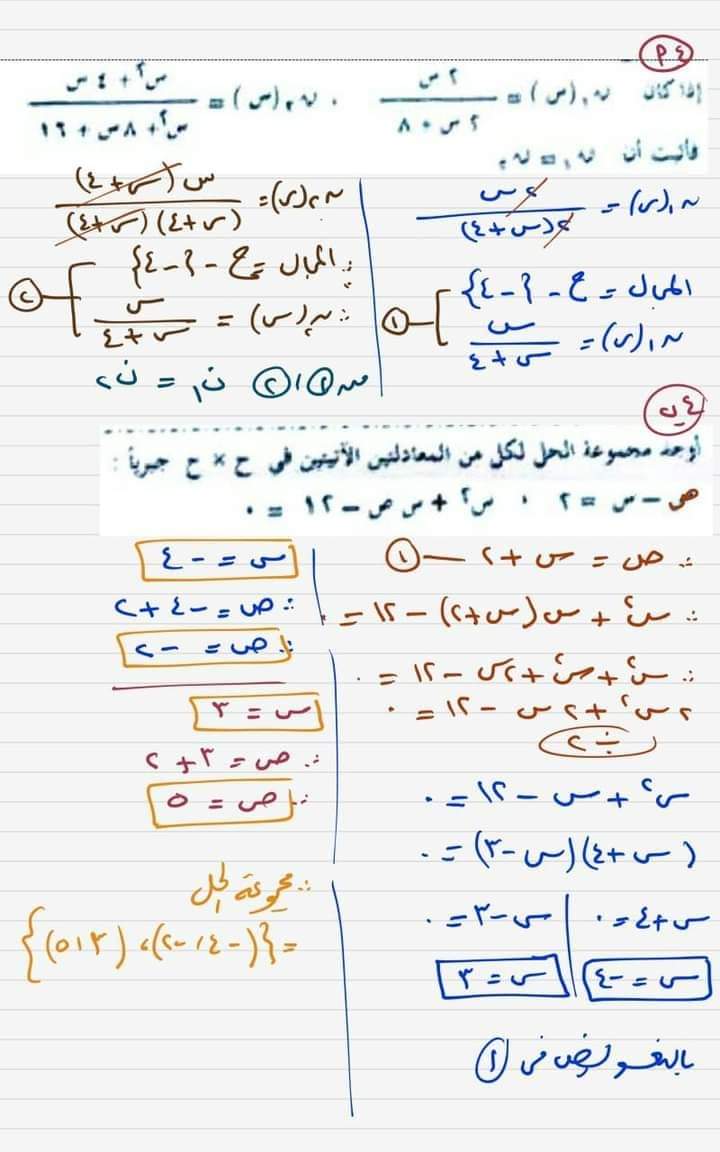 ٤ P
إذا كان ن₁(س) = ٢س / (٢س + ٨) ، ن₂(س) = (س² + ٤س) / (س² + ٨س + ١٦)
فاثبت أن ن₁ = ن₂
ن₁(س) = ٢س / ٢(س + ٤)
المجال = ح - {-٤}
ن₁(س) = س / (س + ٤) ①
ن₂(س) = س(س + ٤) / (س + ٤)(س + ٤)
∴ المجال = ح - {-٤}
∴ ن₂(س) = س / (س + ٤) ②
من ①، ② ن₁ = ن₂
٤ ب
أوجد مجموعة الحل لكل من المعادلتين الآتيتين في ح × ح جبرياً :
ص - س = ٢ ، س² + س ص - ١٢ = ٠
∴ ص = س + ٢ — ①
∴ س² + س(س + ٢) - ١٢ = ٠
∴ س² + س² + ٢س - ١٢ = ٠
٢س² + ٢س - ١٢ = ٠
÷ ٢
س² + س - ١٢ = ٠
(س + ٤)(س - ٣) = ٠
س + ٤ = ٠ | س - ٣ = ٠
س = -٤ | س = ٣
بالتعويض في ①
س = -٤
∴ ص = -٤ + ٢
∴ ص = -٢
س = ٣
∴ ص = ٣ + ٢
∴ ص = ٥
∴ مجموعة الحل
= {(-٤، -٢)، (٣، ٥)}